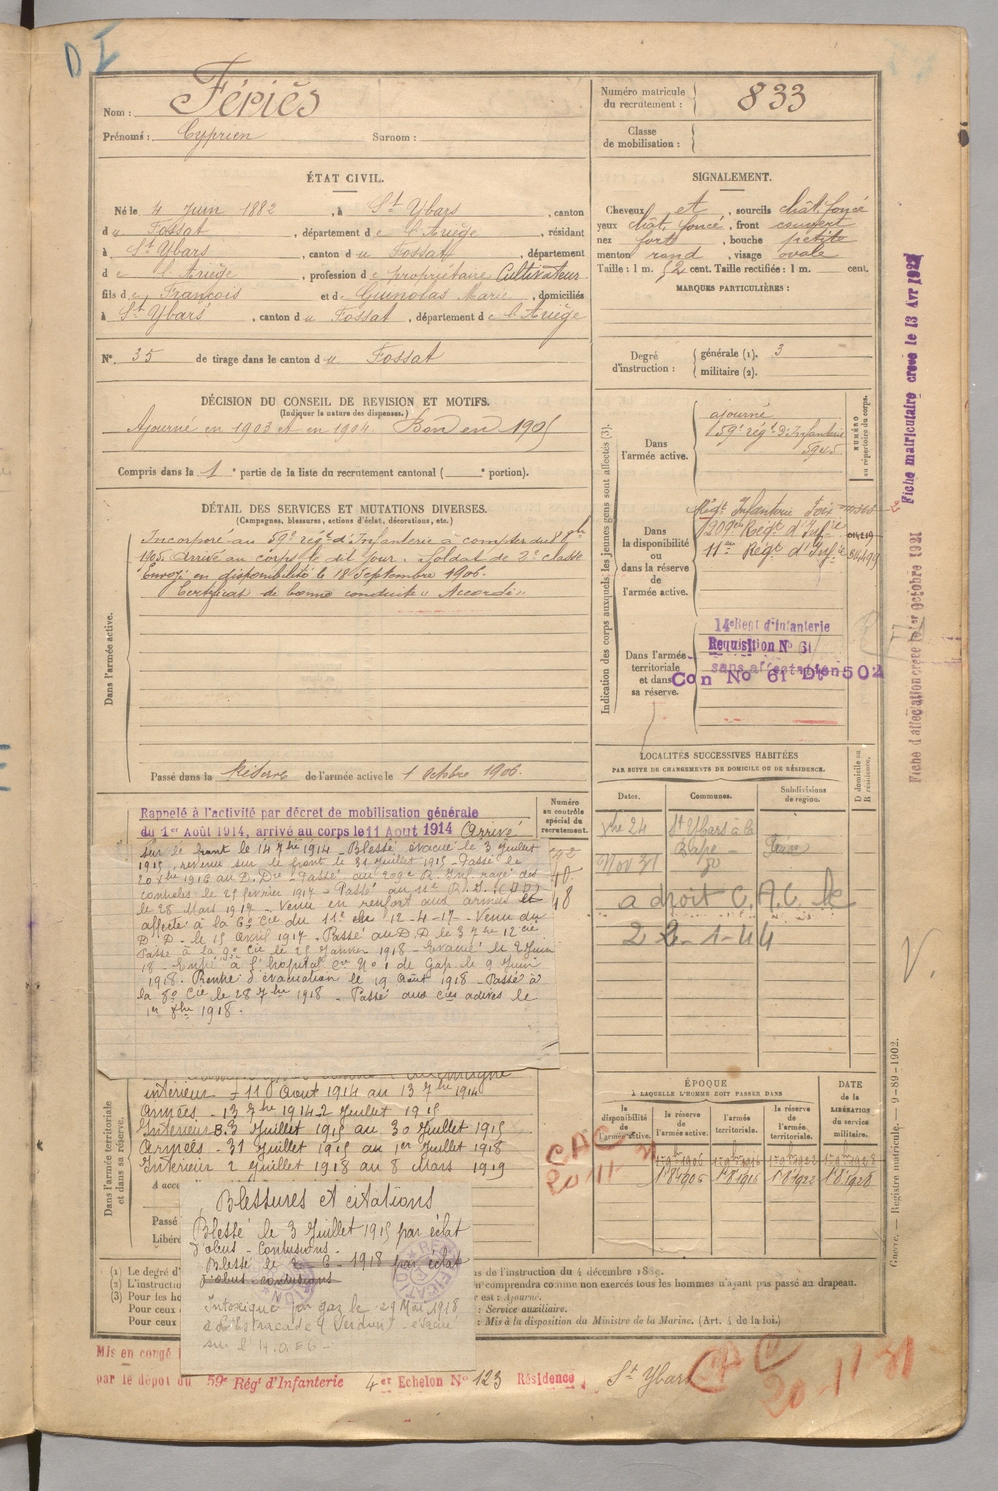 D I
Nom : Fériès
Prénoms : Cyprien Surnom :
Numéro matricule du recrutement : 833
Classe de mobilisation :
ÉTAT CIVIL.
Né le 4 Juin 1882 , à St Ybars , canton
du Fossat , département de l'Ariège , résidant
à St Ybars , canton du Fossat , département
de l'Ariège , profession de propriétaire Cultivateur
fils de François et de Marie , domiciliés
à St Ybars , canton du Fossat , département de l'Ariège
N° 35 de tirage dans le canton du Fossat
SIGNALEMENT.
Cheveux et , sourcils chât. foncé
yeux chât. foncé , front couvert
nez fort , bouche petite
menton rond , visage ovale
Taille : 1 m. 52 cent. Taille rectifiée : 1 m. cent.
MARQUES PARTICULIÈRES :
Degré d'instruction : générale (1). 3
militaire (2).
DÉCISION DU CONSEIL DE REVISION ET MOTIFS.
(Indiquer la nature des dispenses.)
Ajourné en 1903 et en 1904. Bon en 1905
Compris dans la 1e partie de la liste du recrutement cantonal ( e portion).
DÉTAIL DES SERVICES ET MUTATIONS DIVERSES.
(Campagnes, blessures, actions d'éclat, décorations, etc.)
Dans l'armée active.
Incorporé au 59e régt d'Infanterie à compter du 8 8bre
1905. Arrivé au corps le dit jour. Soldat de 2e classe
Envoyé en disponibilité le 18 Septembre 1906.
Certificat de bonne conduite "Accordé"
Passé dans la Réserve de l'armée active le 1 Octobre 1906.
Indication des corps auxquels les jeunes gens sont affectés (3).
NUMÉRO au répertoire du corps.
Dans l'armée active.
ajourné
59e régt d'Infanterie
Dans la disponibilité ou dans la réserve de l'armée active.
Régt Infanterie Foix
209e Régt d'Infie
11e Régt d'Infie
Dans l'armée territoriale et dans sa réserve.
14e Regt d'Infanterie
Requisition N° 61
sans affectation
Con N° 61 Dton 502
Fiche matriculaire creee le 13 Avr 1927
Fiche d'affectation creee le 1er octobre 1921
LOCALITÉS SUCCESSIVES HABITÉES
PAR SUITE DE CHANGEMENTS DE DOMICILE OU DE RÉSIDENCE.
D domicile ou R résidence.
Dates. Communes. Subdivisions de région.
Xbre 24 St Ybars à la Foix
Nov 31
a droit C.A.C. le
22-1-44
Numéro au contrôle spécial du recrutement.
Rappelé à l'activité par décret de mobilisation générale
du 1er Août 1914, arrivé au corps le 11 Août 1914 Arrivé
sur le front le 14 7bre 1914 - Blessé évacué le 3 Juillet
1915, revenu sur le front le 31 Juillet 1915 - Passé le
20 Xbre 1916 au D.D. - Passé au 209e R. Inf. rayé des
contrôles le 25 février 1917 - Passé au 11e R.I. (DD)
le 28 Mars 1917 - Venu en renfort aux armées et
affecté à la 6e Cie du 11e le 12-4-17 - Venu du
D.D. le 15 Avril 1917 - Passé au D.D. le 3 7bre 12 Cie
Passé à la 9e Cie le 25 Janvier 1918 - Evacué le 2 Juin
18 - Entré à l'hopital N° 1 de Gap le 9 Juin
1918. Rentré d'évacuation le 19 Août 1918 - Passé à
la 8e Cie le 28 7bre 1918 - Passé aux Cies actives le
1er Xbre 1918.
Dans l'armée territoriale et dans sa réserve.
intérieur 11 Aout 1914 au 13 7bre 1914
Armées - 13 7bre 1914 2 Juillet 1915
Intérieur 3 Juillet 1915 au 30 Juillet 1915
Armées 31 Juillet 1915 au 1er Juillet 1918
Intérieur 2 Juillet 1918 au 8 Mars 1919
A acco
Passé
Libéré
Blessures et citations
Blessé le 3 Juillet 1915 par éclat
d'obus - Contusions.
Blessé le 2-6-1918 par éclat
d'obus contusions
Intoxiqué par gaz le 29 Mai 1918
ÉPOQUE
À LAQUELLE L'HOMME DOIT PASSER DANS
DATE de la LIBÉRATION du service militaire.
la disponibilité de l'armée active. la réserve de l'armée active. l'armée territoriale. la réserve de l'armée territoriale.
1 8bre 1906 1 8bre 1916 1 8bre 1922 1 8bre 1928
CAC
20-11-31
(1) Le degré d' s de l'instruction du 4 décembre 1889.
(2) L'instructio comprendra comme non exercés tous les hommes n'ayant pas passé au drapeau.
(3) Pour les ho r est : Ajourné.
Pour ceux : Service auxiliaire.
Pour ceux : Mis à la disposition du Ministre de la Marine. (Art. 4 de la loi.)
Guerre. — Registre matricule. — 9-89-1902.
Mis en congé
par le dépot du 59e Régt d'Infanterie 4er Echelon N° 123 Résidence St Ybars
CAC
20-11-31